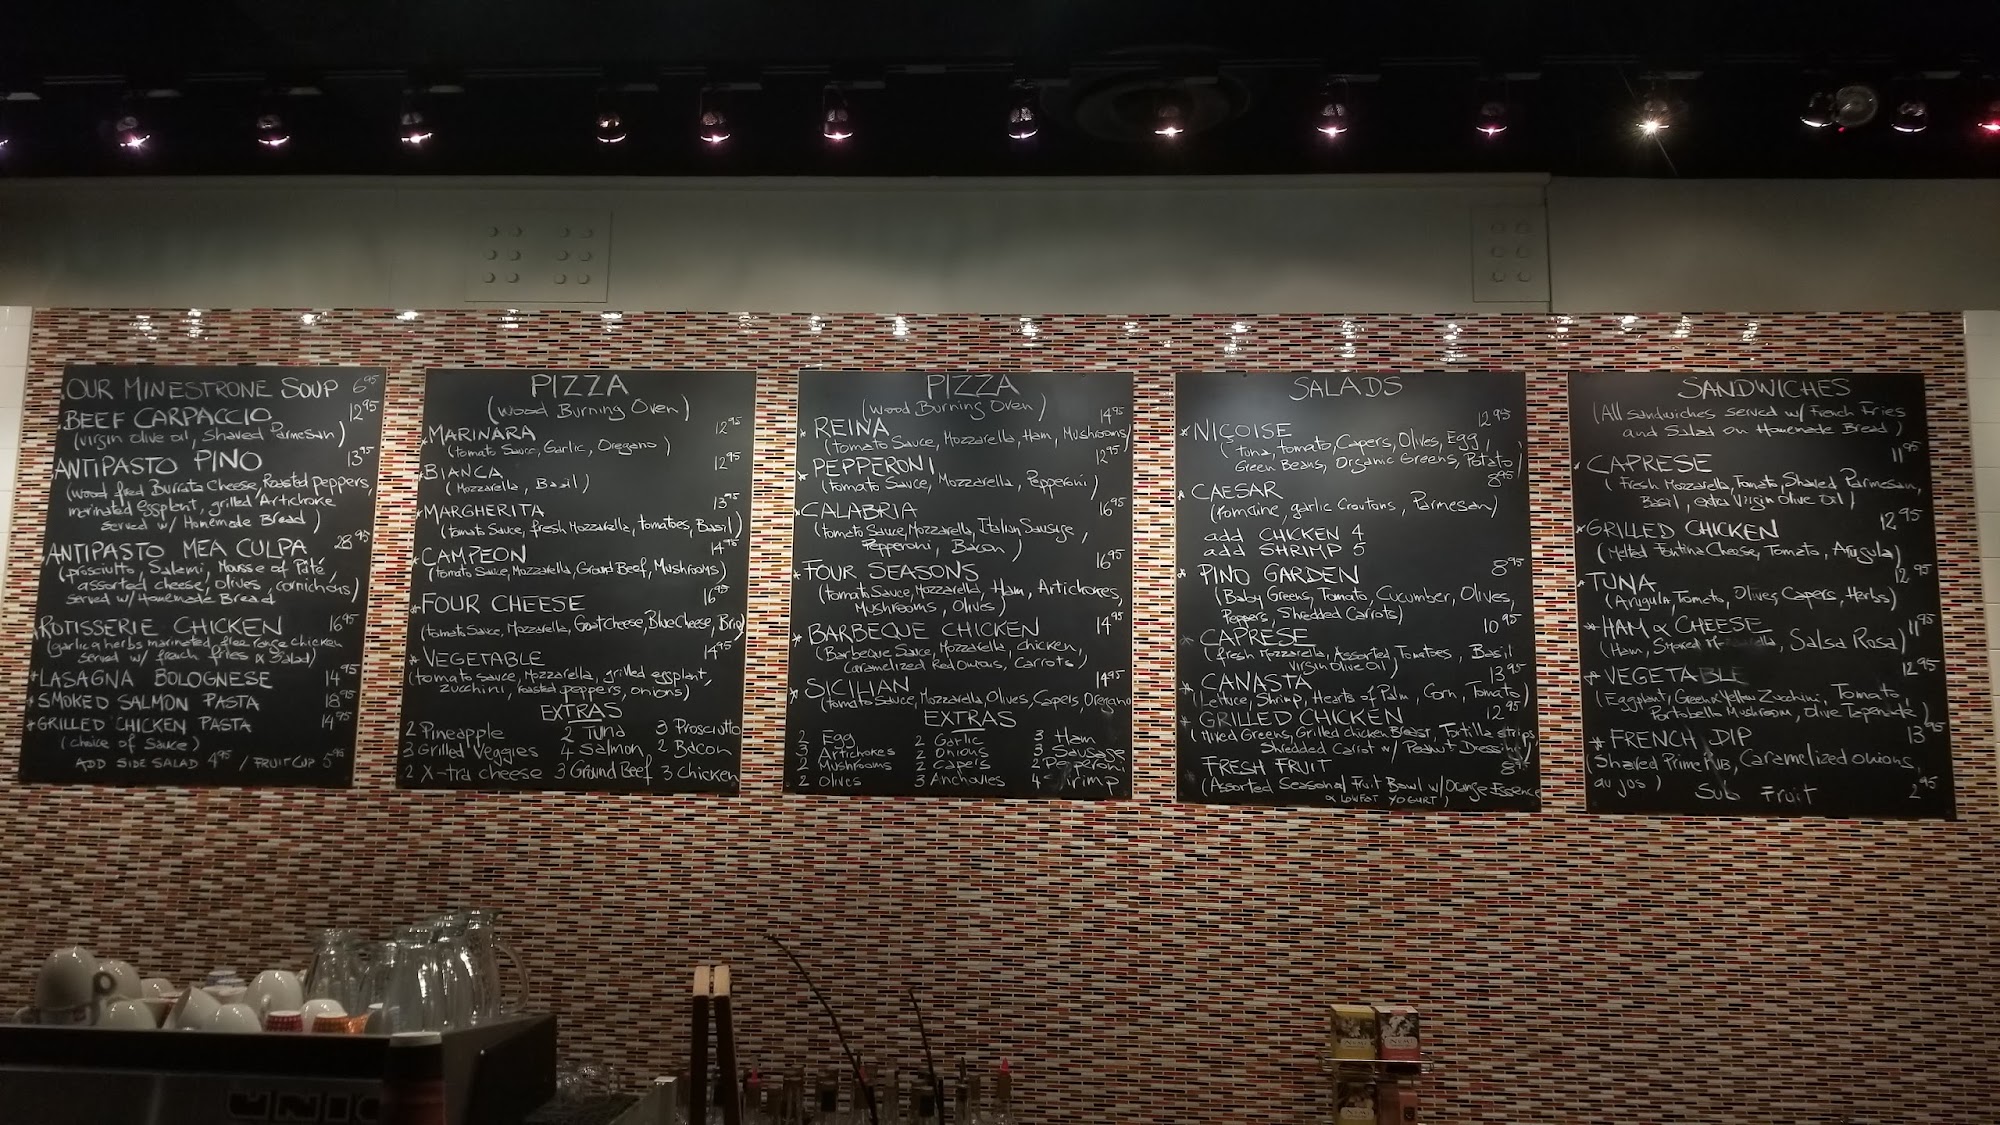 OUR MINESTRONE SOUP 6.95
BEEF CARPACCIO 12.95
(virgin olive oil, Shaved Parmesan)
ANTIPASTO PINO 13.95
(wood fired Burrata Cheese, Roasted peppers,
marinated eggplant, grilled Artichoke
served w/ Homemade Bread)
ANTIPASTO MEA CULPA 28.95
(prosciutto, Salami, Mousse of Pâté,
assorted cheese, olives, cornichons)
served w/ Homemade Bread
ROTISSERIE CHICKEN 16.95
(garlic & herbs marinated free range chicken
served w/ french fries & Salad)
*LASAGNA BOLOGNESE 14.95
*SMOKED SALMON PASTA 18.95
*GRILLED CHICKEN PASTA 14.95
(choice of Sauce)
ADD SIDE SALAD 4.95 / FRUIT CUP 5.95
PIZZA
(Wood Burning Oven)
*MARINARA 12.95
(tomato Sauce, Garlic, Oregano)
*BIANCA 12.95
(Mozzarella, Basil)
*MARGHERITA 13.95
(tomato Sauce, fresh Mozzarella, tomatoes, Basil)
*CAMPEON 14.95
(tomato Sauce, Mozzarella, Ground Beef, Mushrooms)
*FOUR CHEESE 16.95
(tomato Sauce, Mozzarella, Goat Cheese, Blue Cheese, Brie)
*VEGETABLE 14.95
(tomato sauce, Mozzarella, grilled eggplant,
zucchini, roasted peppers, onions)
EXTRAS
2 Pineapple 2 Tuna 3 Prosciutto
3 Grilled Veggies 4 Salmon, 2 Bacon
2 X-tra cheese 3 Ground Beef 3 Chicken
PIZZA
(Wood Burning Oven)
*REINA 14.95
(tomato Sauce, Mozzarella, Ham, Mushrooms)
*PEPPERONI 12.95
(tomato Sauce, Mozzarella, Pepperoni)
*CALABRIA 16.95
(tomato Sauce, Mozzarella, Italian Sausage,
Pepperoni, Bacon)
*FOUR SEASONS 16.95
(tomato Sauce, Mozzarella, Ham, Artichokes,
Mushrooms, Olives)
*BARBEQUE CHICKEN 14.95
(Barbeque Sauce, Mozzarella, Chicken,
Caramelized Red onions, Carrots)
*SICILIAN 14.95
(tomato Sauce, Mozzarella, Olives, Capers, Oregano
EXTRAS
2 Egg 2 Garlic 3 Ham
3 Artichokes 2 Onions 3 Sausage
2 Mushrooms 2 Capers 2 Pepperoni
2 Olives 3 Anchovies 4 Shrimp
SALADS
*NIÇOISE 12.95
(tuna, tomato, Capers, Olives, Egg,
Green Beans, Organic Greens, Potato)
*CAESAR 8.95
(romaine, garlic Croutons, Parmesan)
add CHICKEN 4
add SHRIMP 5
*PINO GARDEN 8.95
(Baby Greens, Tomato, Cucumber, Olives,
Peppers, Shredded Carrots)
*CAPRESE 10.95
(fresh Mozzarella, Assorted Tomatoes, Basil
Virgin Olive Oil)
*CANASTA 13.95
(Lettuce, Shrimp, Hearts of Palm, Corn, Tomato)
*GRILLED CHICKEN 12.95
(Mixed Greens, Grilled chicken Breast, Tortilla strips
Shredded Carrot w/ Peanut Dressing)
*FRESH FRUIT 8.95
(Assorted Seasonal Fruit Bowl w/ Orange Essence
& LOWFAT YOGURT)
SANDWICHES
(All sandwiches served w/ French Fries
and Salad on Homemade Bread)
*CAPRESE 11.95
(Fresh Mozzarella, Tomato, Shaved Parmesan,
Basil, extra Virgin Olive Oil)
*GRILLED CHICKEN 12.95
(Melted Fontina Cheese, Tomato, Arugula)
*TUNA 12.95
(Arugula, Tomato, Olives, Capers, Herbs)
*HAM & CHEESE 11.95
(Ham, Smoked Mozzarella, Salsa Rosa)
*VEGETABLE 12.95
(Eggplant, Green & Yellow Zucchini, Tomato,
Portobello Mushroom, Olive Tapenade)
*FRENCH DIP 13.95
(Shaved Prime Rib, Caramelized onions,
au jos)
Sub Fruit 2.95
UNIC